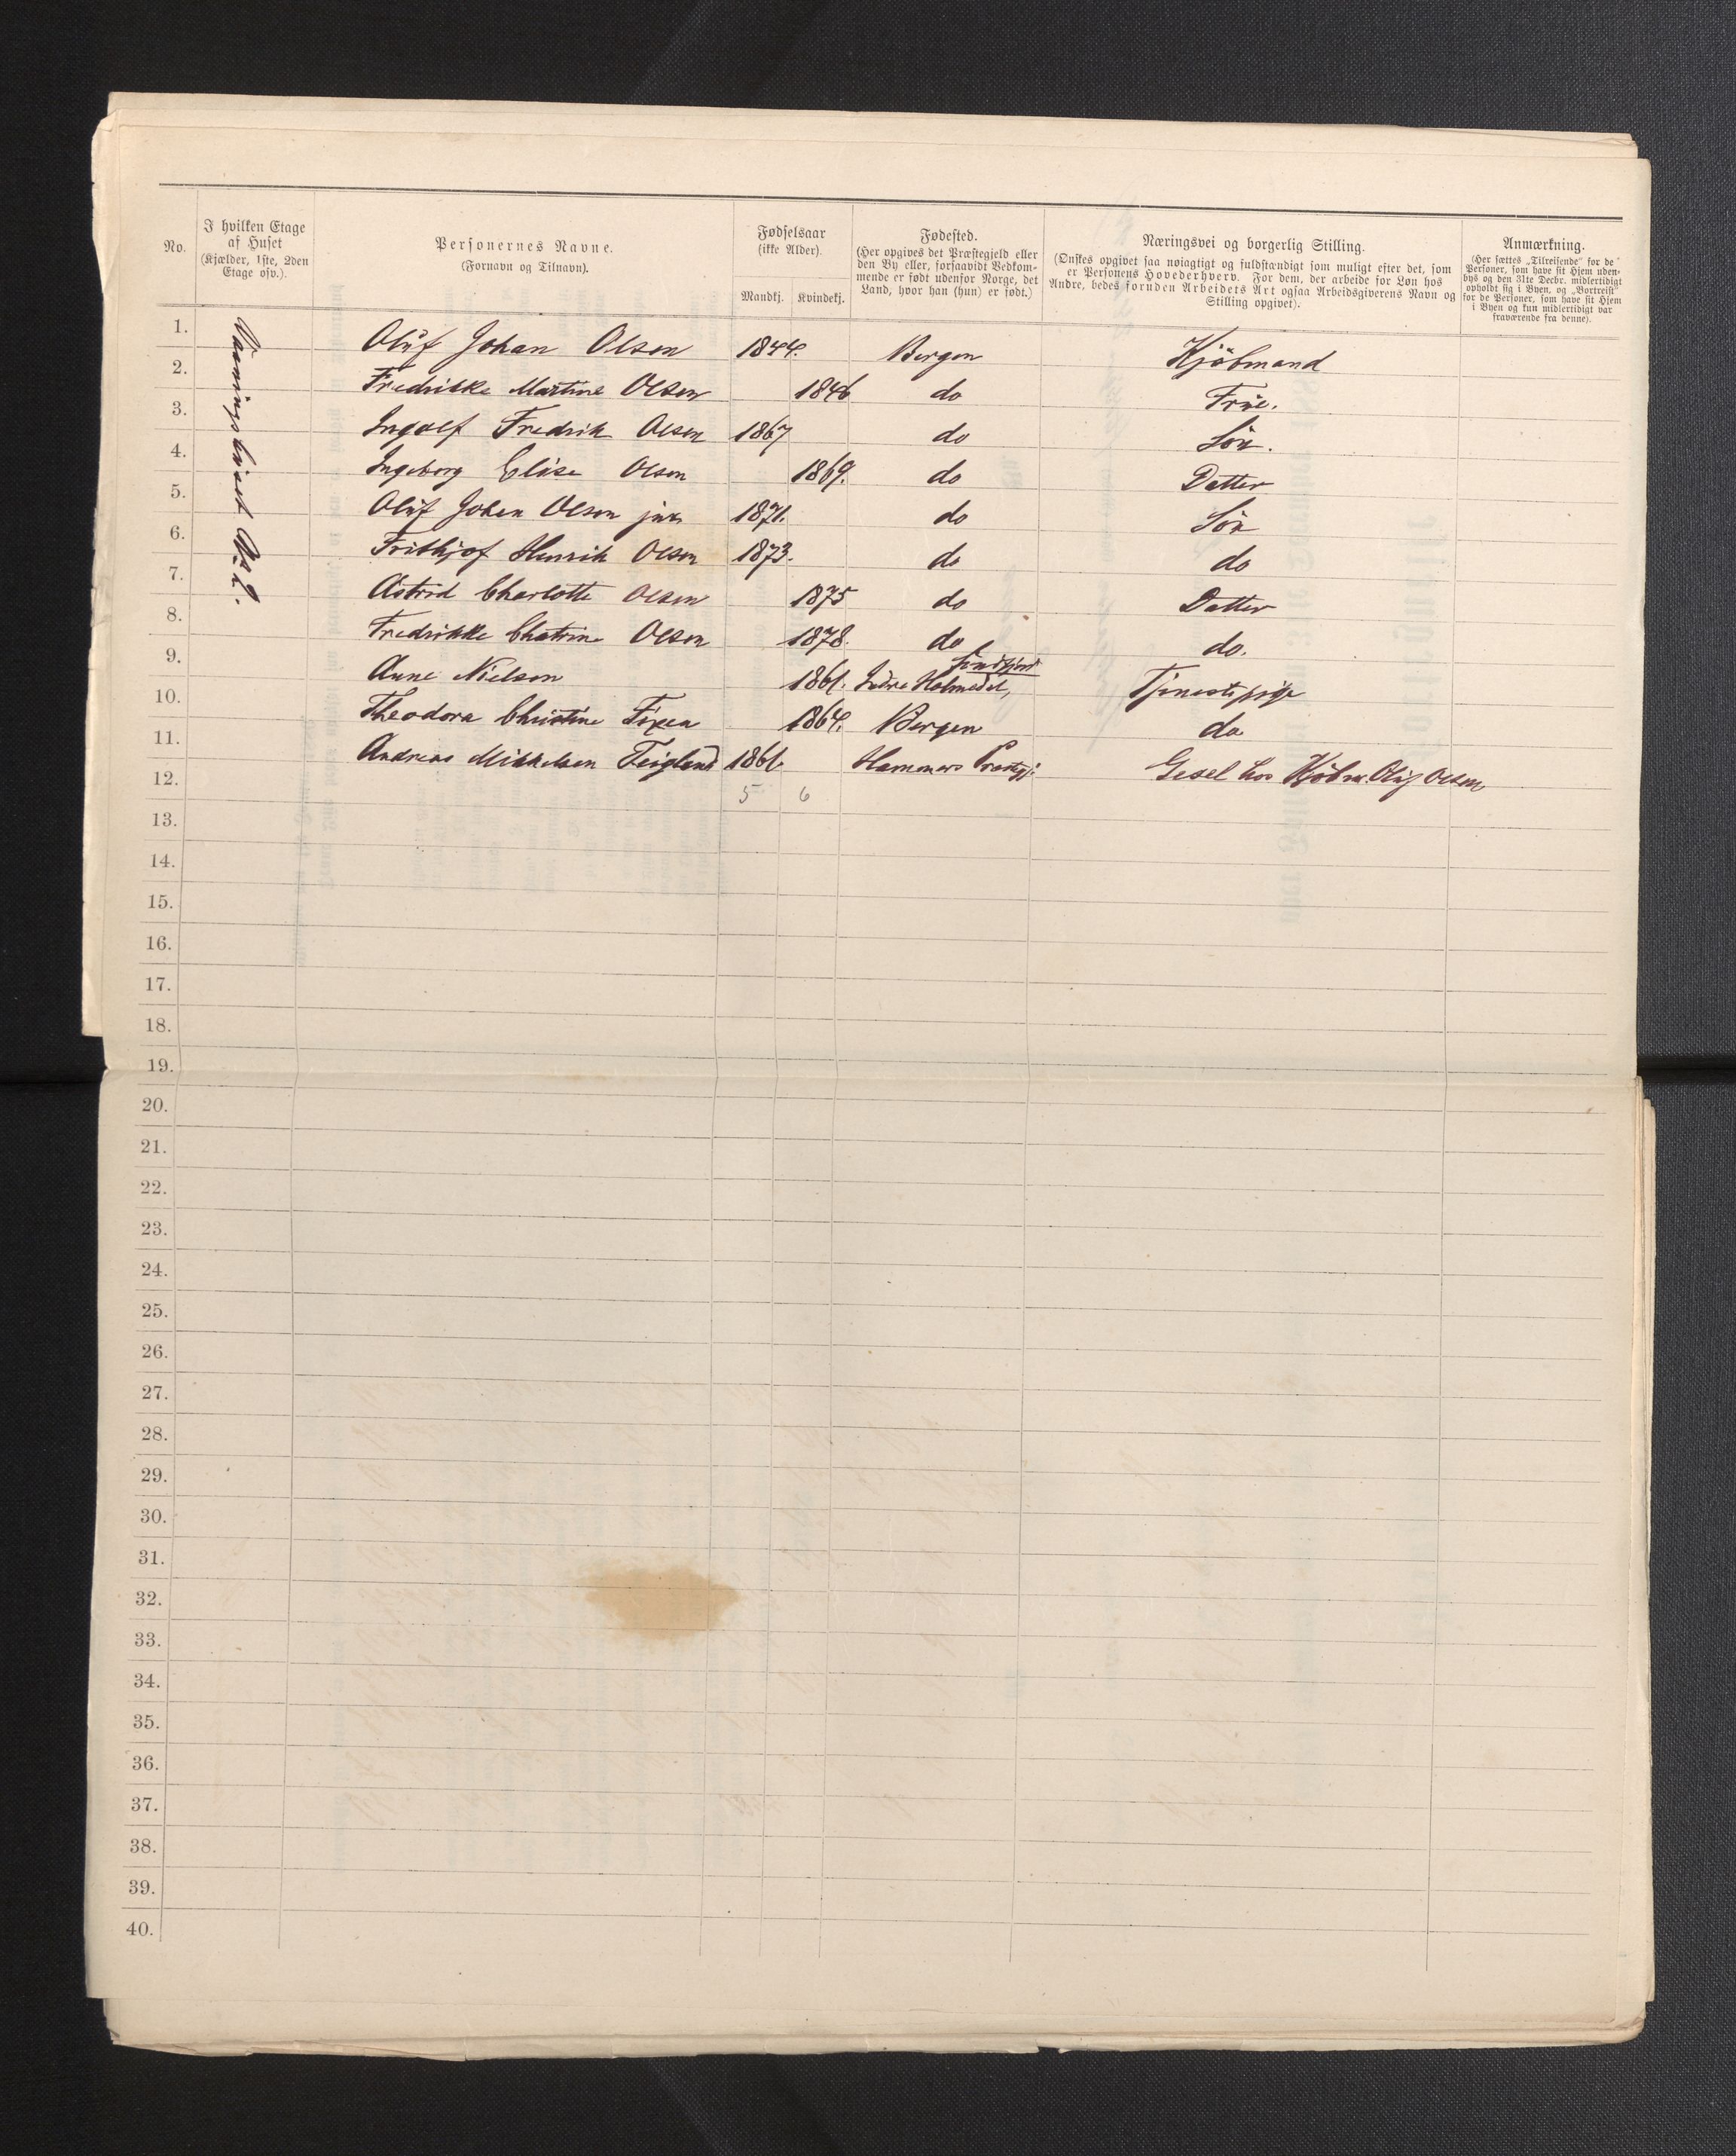 No.
I hvilken Etage
af Huset
(Kjælder, 1ste, 2den
Etage osv.).
Personernes Navne.
(Fornavn og Tilnavn).
Fødselsaar
(ikke Alder).
Mandkj. Kvindekj.
Fødested.
(Her opgives det Præstegjeld eller
den By eller, forsaavidt Vedkom-
mende er født udenfor Norge, det
Land, hvor han (hun) er født.)
Næringsvei og borgerlig Stilling.
(Ønskes opgivet saa nøiagtigt og fuldstændigt som muligt efter det, som
er Personens Hovederhverv. For dem, der arbeide for Løn hos
Andre, bedes foruden Arbeidets Art ogsaa Arbeidsgiverens Navn og
Stilling opgivet).
Anmærkning.
(Her sættes „Tilreisende“ for de
Personer, som have sit Hjem uden-
bys og den 31te Decbr. midlertidigt
opholdt sig i Byen, og „Bortreist“
for de Personer, som have sit Hjem
i Byen og kun midlertidigt var
fraværende fra denne).
1. Oluf Johan Olsen 1844. Bergen Kjöbmand
2. Fredrikke Martine Olsen 1846 do Frue.
3. Ingolf Fredrik Olsen 1867 do Sön.
4. Ingeborg Elise Olsen 1869. do Datter
5. Oluf Johan Olsen jun 1871. do Sön
6. Frithjof Henrik Olsen 1873. do do
7. Astrid Charlotte Olsen 1875 do Datter
8. Fredrikke Chatrine Olsen 1878. do do.
Söndfjord
9. Anne Nielsen 1861. Indre Holmedal, Tjenestepige
10. Theodora Christine 1864. Bergen do
11. Andreas Mikkelsen Teigland 1861. Hammers Præstgj: Gesel hos Kjöbm. Oluf Olsen
12. 5 6
13.
14.
15.
16.
17.
18.
19.
20.
21.
22.
23.
24.
25.
26.
27.
28.
29.
30.
31.
32.
33.
34.
35.
36.
37.
38.
39.
40.